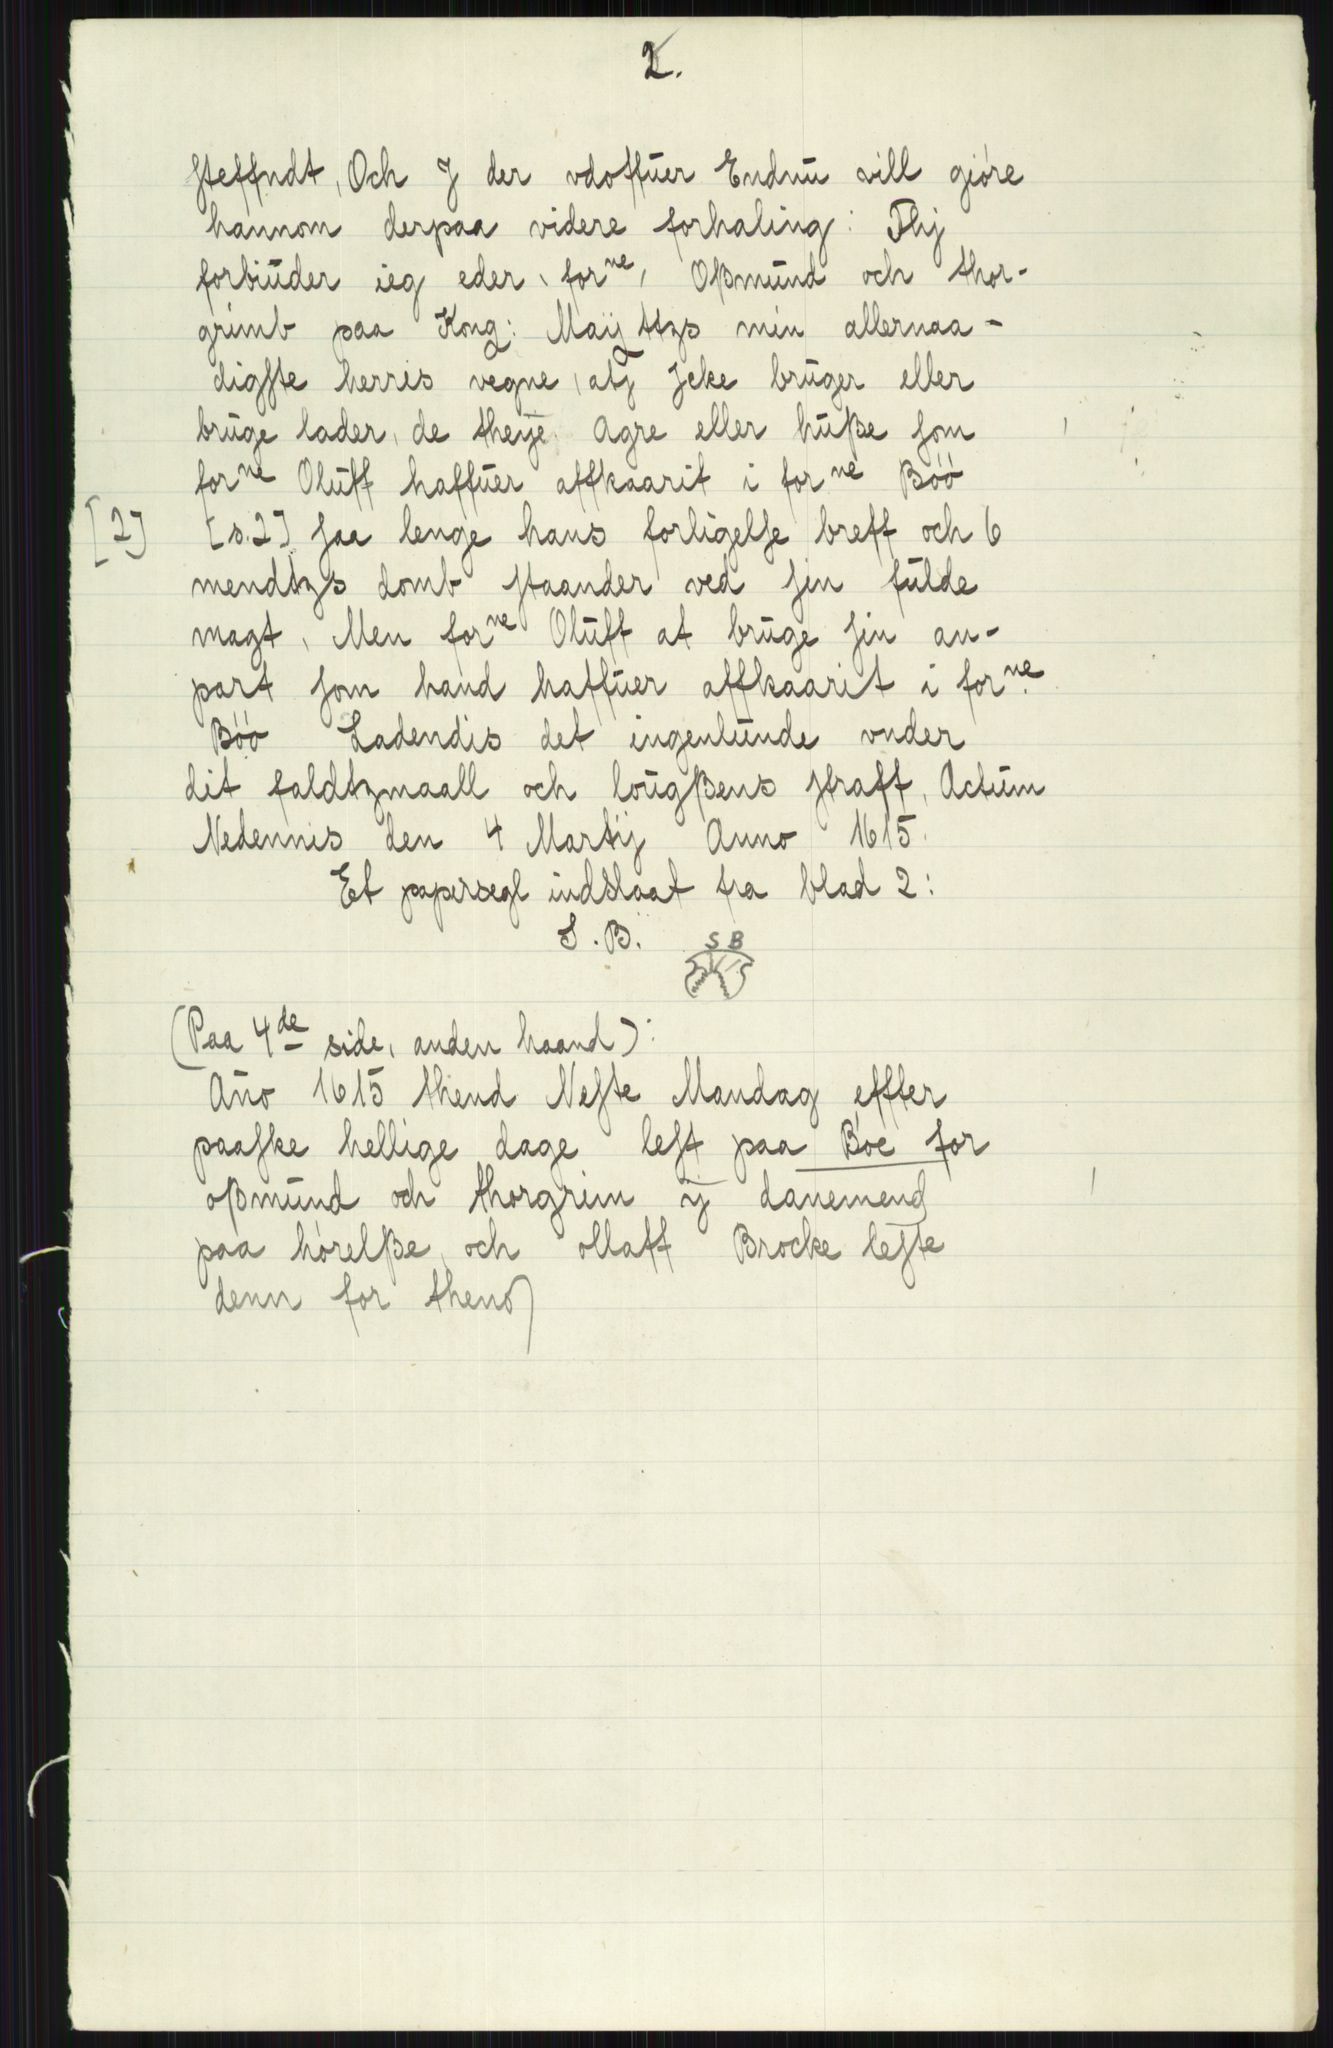 2.
steffndt, Och J der vdoffuer Endnu vill gióre
hannom derpaa videre forhaling: Thj
forbiuder ieg eder, forne, Oßmund och thor-
grimb paa Kong: Maÿ ttzs min allernaa-
digste herris vegne, atj Jcke bruger eller
bruge lader, de theÿe Agre eller huße som
forne Oluff haffuer affkaarit i forne Bóó
[2] [s.2] saa lenge hans forligelse breff och 6
mendtzs domb staander ved sin fulde
magt, Men forne Oluff at bruge sin an-
part som hand haffuer affkaarit i forne
Bóó Ladendis det ingenlunde vnder
dit faldtzmaall och lougßens straff, Actum
Nedennis den 4 Martij Anno 1615.
Et papirsegl indslaat fra blad 2:
S. B. S B
(Paa 4de side, anden haand):
Año 1615 thend Neste Mandag effter
paaske hellige dage lest paa Bóe for
oßmund och thorgrim ij danemend
paa hórelße, och ollaff Brocke leste
denn for thend